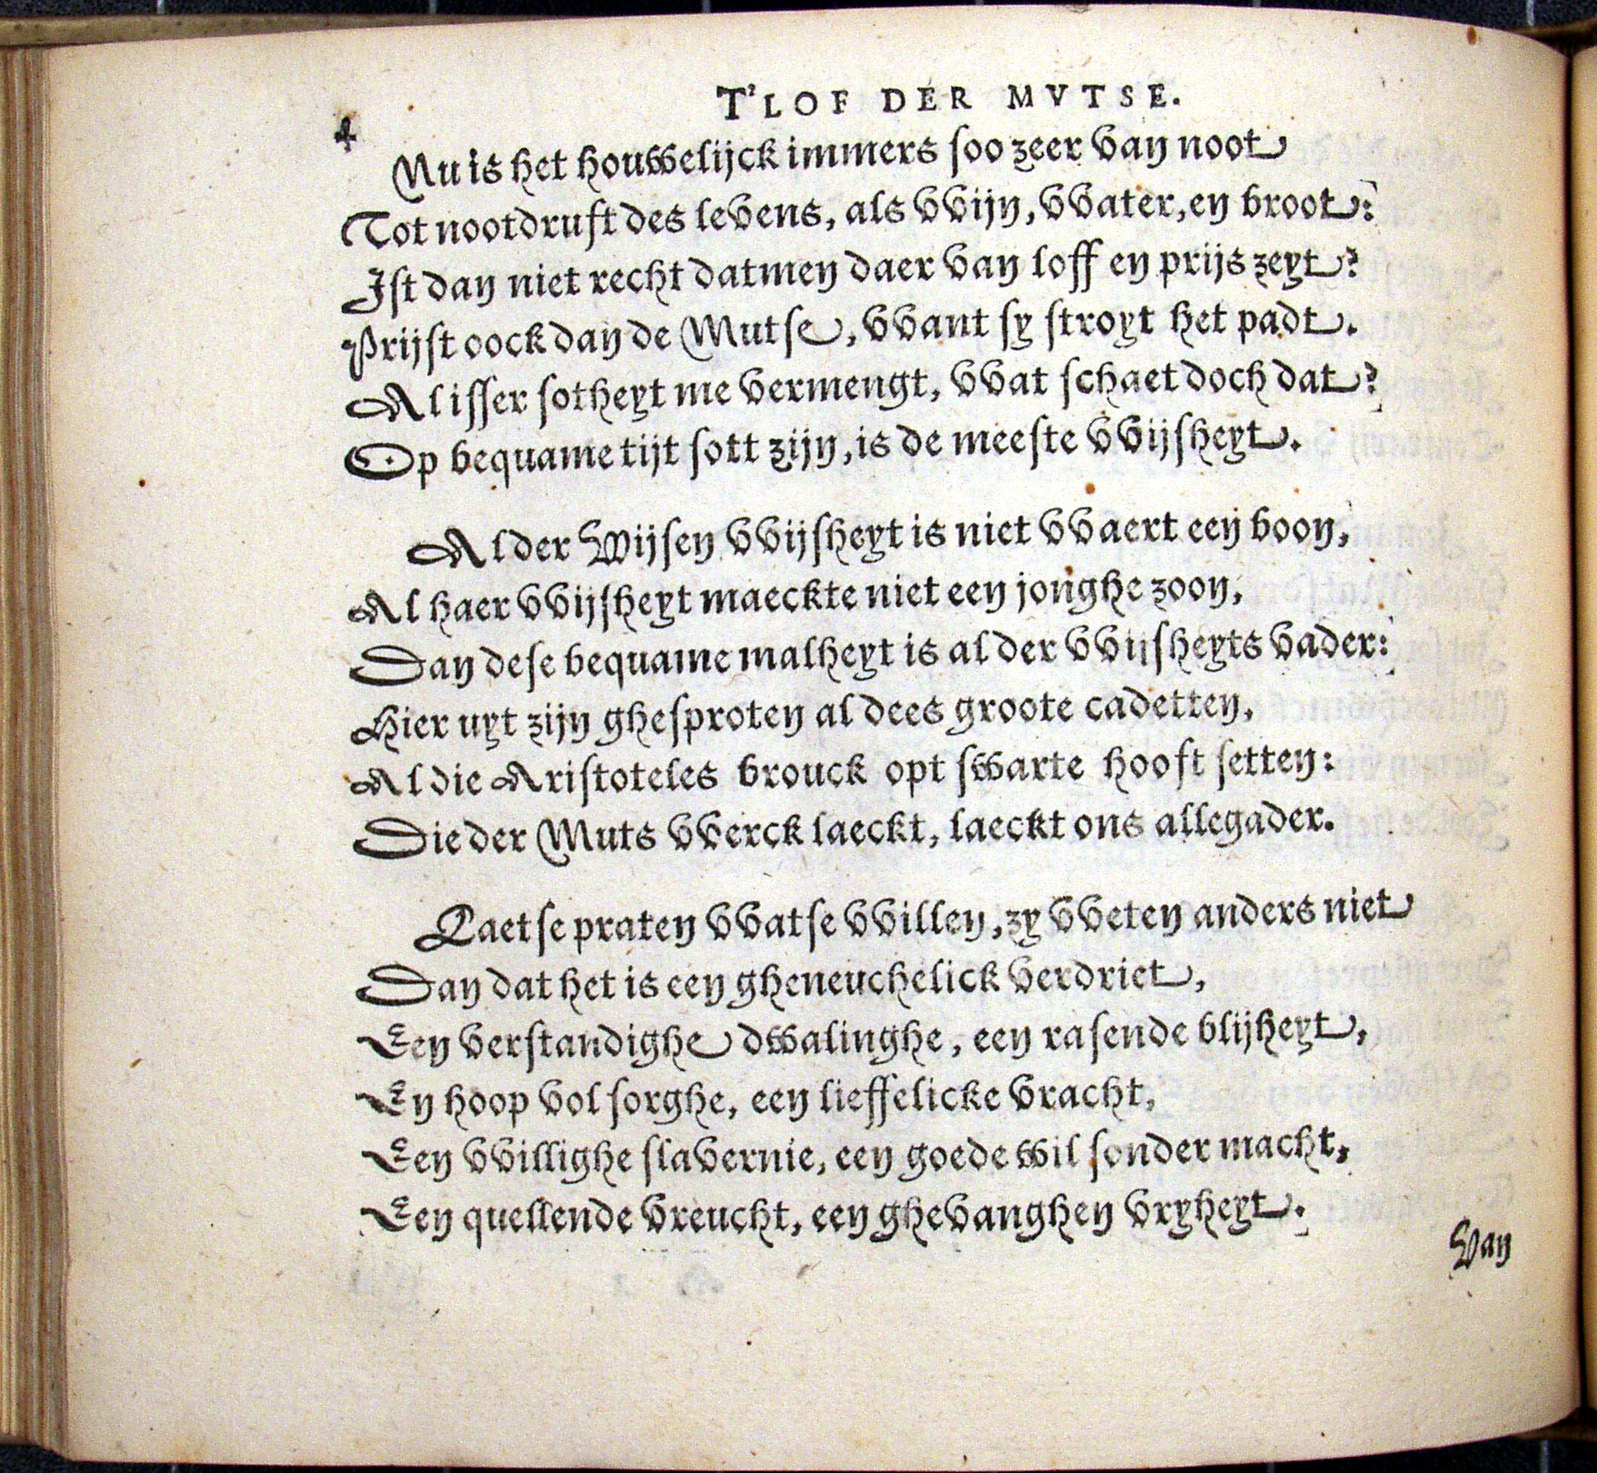 4
T'LOF DER MVTSE.
Nu is het houwelijck immers soo zeer van noot
Tot nootdruft des levens, als vvijn, vvater, en broot:
Ist dan niet recht datmen daer van loff en prijs zeyt?
Prijst oock dan de Mutse, vvant sy stroyt het padt.
Al isser sotheyt me vermengt, vvat schaet doch dat?
Op bequame tijt sott zijn, is de meeste vvijsheyt.
Al der Wijsen vvijsheyt is niet vvaert een boon,
Al haer vvijsheyt maeckte niet een jonghe zoon,
Dan dese bequame malheyt is al der vvijsheyts vader:
Hier uyt zijn ghesproten al dees groote cadetten,
Al die Aristoteles brouck opt swarte hooft setten:
Die der Muts vverck laeckt, laeckt ons allegader.
Laetse praten vvatse vvillen, zy vveten anders niet
Dan dat het is een gheneuchelick verdriet,
Een verstandighe dwalinghe, een rasende blijheyt,
En hoop vol sorghe, een lieffelicke vracht,
Een vvillighe slavernie, een goede wil sonder macht,
Een quellende vreucht, een ghevanghen vryheyt.
Van